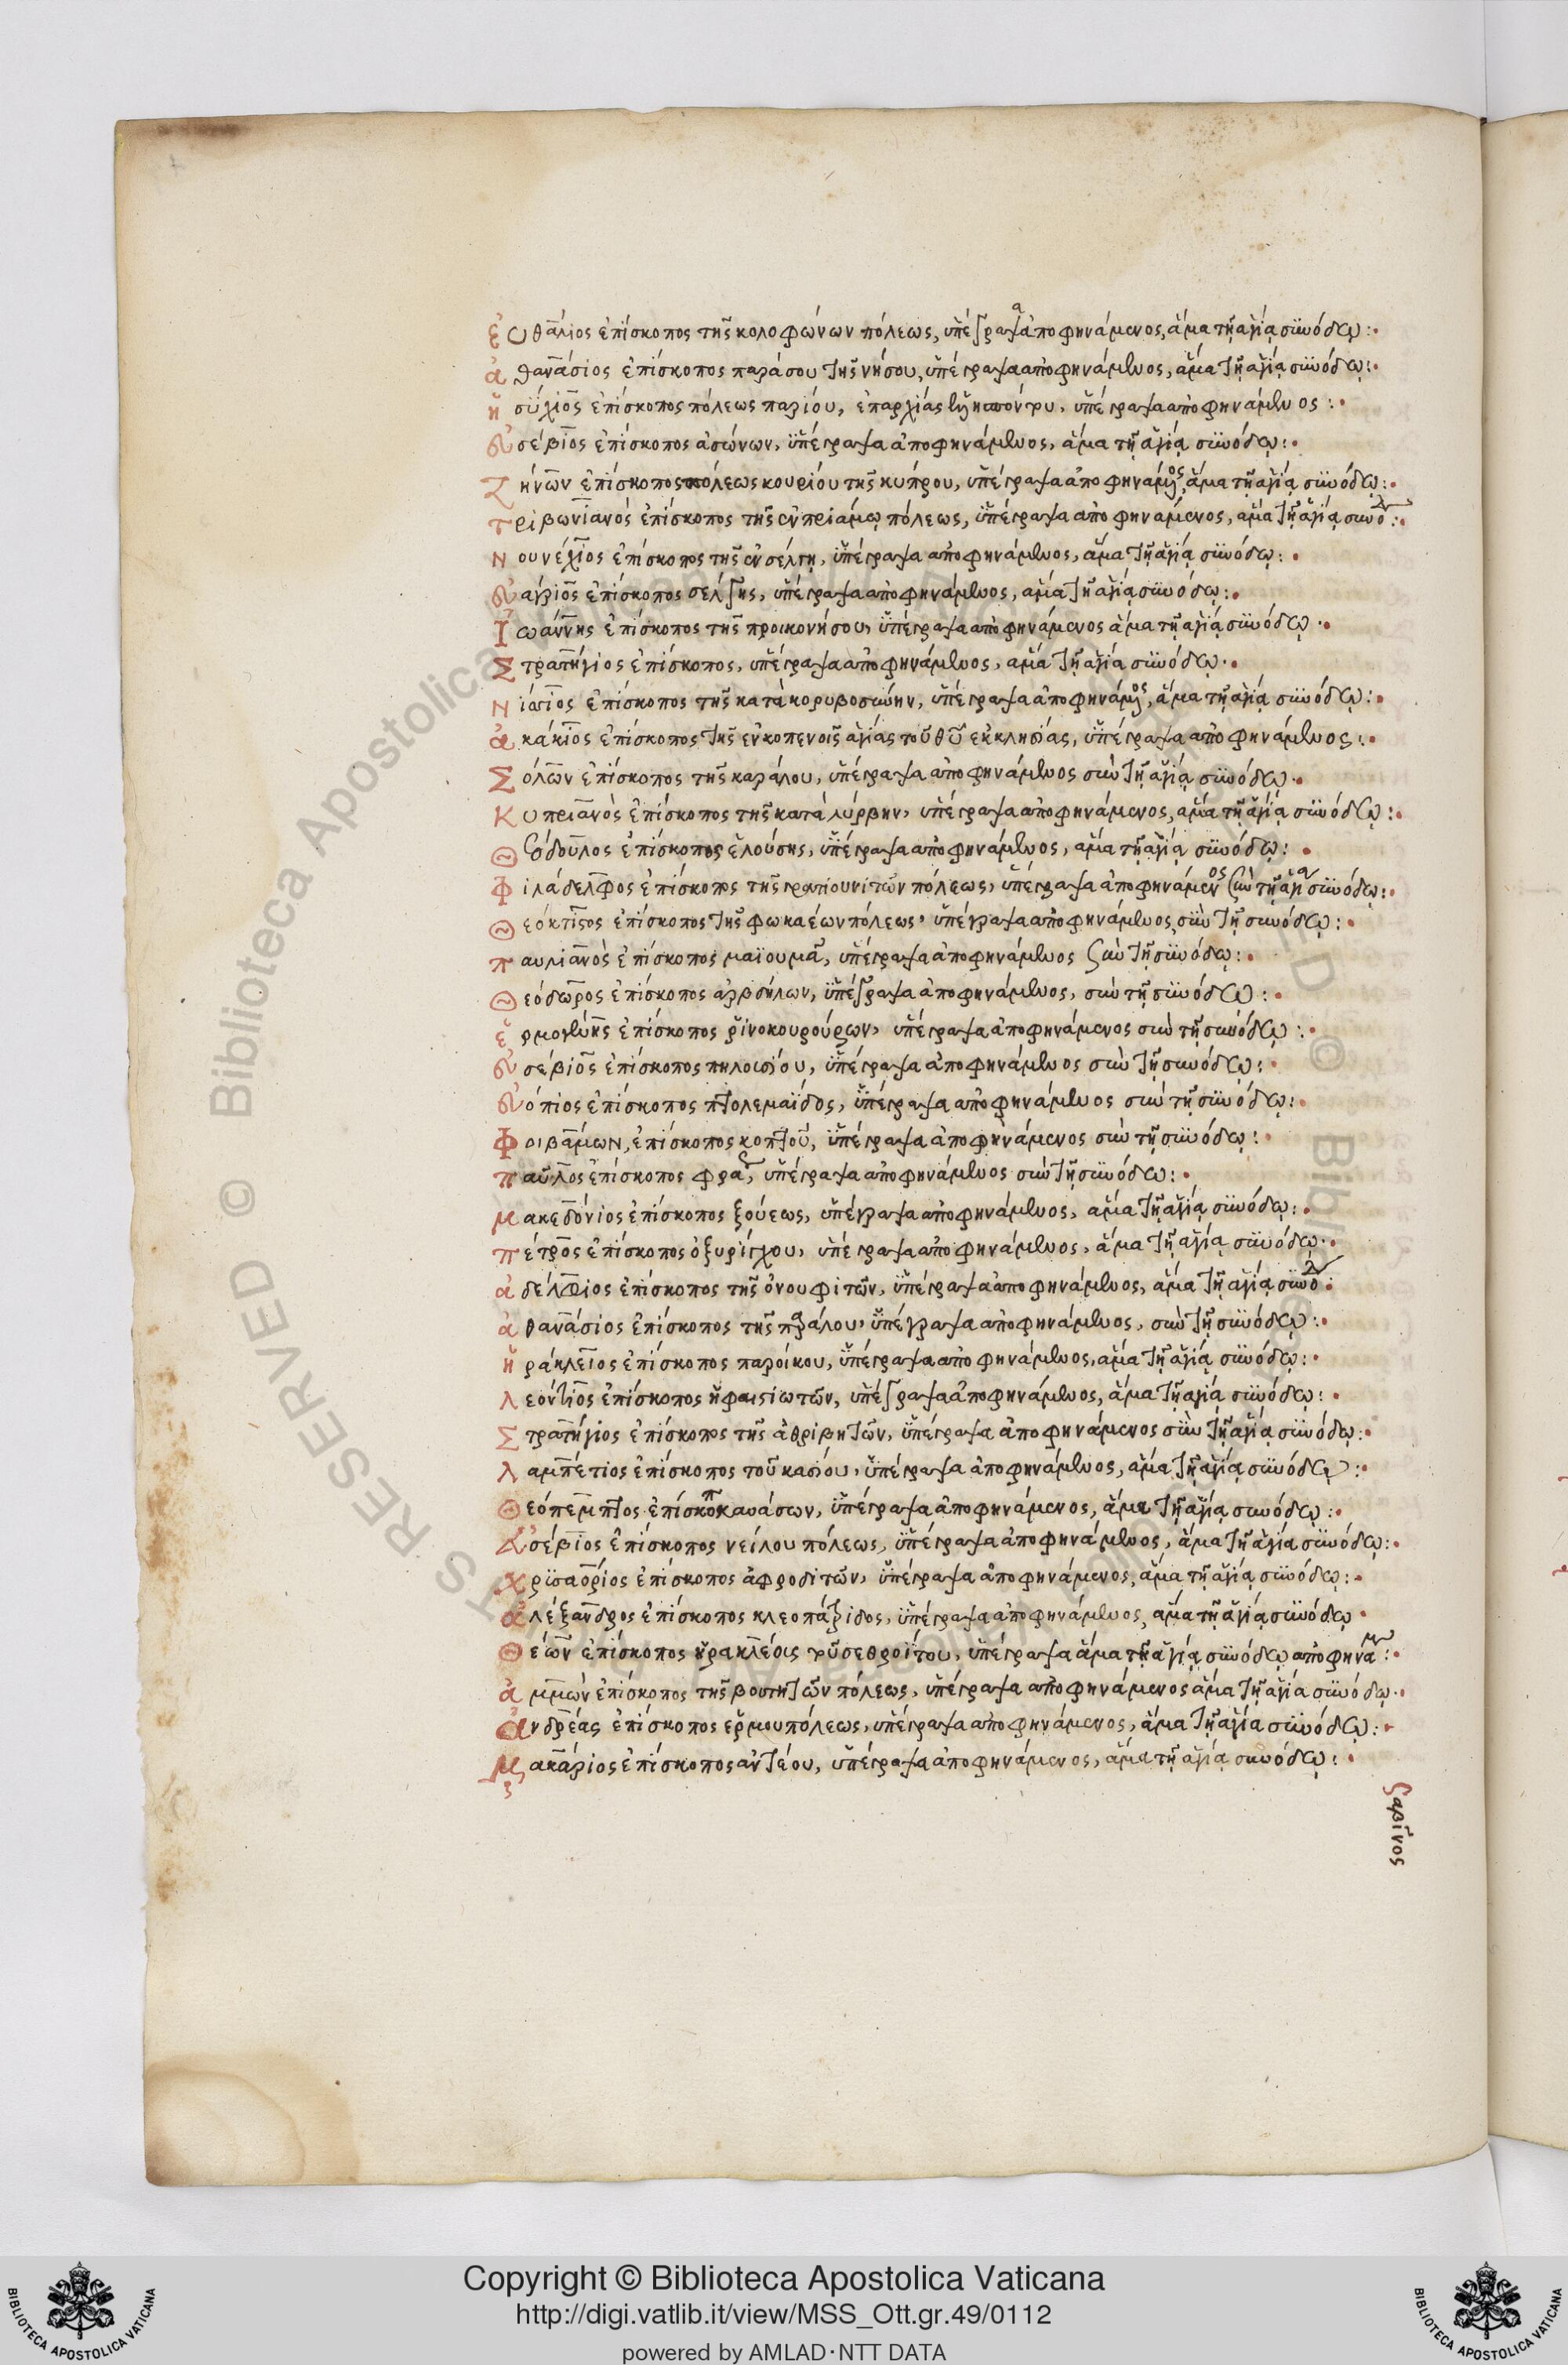 ἐυθάλιος ἐπίσκοπος τῆς κολοφώνων πόλεως, ὑπέγραψα ἀποφηνάμενος, ἅμα τῆ ἁγία συνόδω:
ἀθανάσιος ἐπίσκοπος παράσου τῆς νήσου, ὑπέγραψα ἀποφηνάμενος, ἅμα τῆ ἁγία συνόδω:
ἡσύχιος ἐπίσκοπος πόλεως παρίου, ἐπαρχίας ὑπέγραψα ἀποφηνάμενος:
εὐσέβιος ἐπίσκοπος ἀσώνων, ὑπέγραψα ἀποφηνάμενος, ἅμα τῆ ἁγία συνόδω:
Ζήνων ἐπίσκοπος πόλεως κουρίου τῆς κύπρου, ὑπέγραψα ἀποφηνάμενος, ἅμα τῆ ἁγία συνόδω:
τριβωνιανὸς ἐπίσκοπος τῆς ἐν πριάμω πόλεως, ὑπέγραψα ἀποφηνάμενος, ἅμα τῆ ἁγία συνό:
Νουνέχιος ἐπίσκοπος τῆς ἐν σέλγη, ὑπέγραψα ἀποφηνάμενος, ἅμα τῆ ἁγία συνόδω:
εὐάγριος ἐπίσκοπος σέλγης, ὑπέγραψα ἀποφηνάμενος, ἅμα τῆ ἁγία συνόδω:
Ἰωάννης ἐπίσκοπος τῆς προικονήσου, ὑπέγραψα ἀποφηνάμενος ἅμα τῆ ἁγία συνόδω·
Στρατήγιος ἐπίσκοπος, ὑπέγραψα ἀποφηνάμενος, ἅμα τῆ ἁγία συνόδω·
Νίσιος ἐπίσκοπος τῆς κατὰ κορυβοσώνην, ὑπέγραψα ἀποφηνάμενος, ἅμα τῆ ἁγία συνόδω:
ἀκάκιος ἐπίσκοπος τῆς ἐν κοπενοῖς ἁγίας τοῦ θυ ἐκκλησίας, ὑπέγραψα ἀποφηνάμενος:
Σόλων ἐπίσκοπος τῆς καράλου, ὑπέγραψα ἀποφηνάμενος σὺν τῆ ἁγία συνόδω·
Κυπριανὸς ἐπίσκοπος τῆς κατὰ λύρβην, ὑπέγραψα ἀποφηνάμενος, ἅμα τῆ ἁγία συνόδω:
Θεόδουλος ἐπίσκοπος ἐλούσης, ὑπέγραψα ἀποφηνάμενος, ἅμα τῆ ἁγία συνόδω:
Φιλάδελφος ἐπίσκοπος τῆς γρατιουνιτῶν πόλεως, ὑπέγραψα ἀποφηνάμενος σὺν τῆ ἁγία συνόδω:
Θεόκτιστος ἐπίσκοπος τῆς φωκαέων πόλεως, ὑπέγραψα ἀποφηνάμενος, σὺν τῆ συνόδω:
παυλιανὸς ἐπίσκοπος μαϊουμᾶ, ὑπέγραψα ἀποφηνάμενος σὺν τῆ συνόδω:
Θεόδωρος ἐπίσκοπος ἀρβδήλων, ὑπέγραψα ἀποφηνάμενος, σὺν τῆ συνόδω:
ἑρμογένης ἐπίσκοπος ῥινοκουρούρων, ὑπέγραψα ἀποφηνάμενος σὺν τῆ συνόδω:
εὐσέβιος ἐπίσκοπος πηλουσίου, ὑπέγραψα ἀποφηνάμενος σὺν τῆ συνόδω:
εὐόπιος ἐπίσκοπος πτολεμαΐδος, ὑπέγραψα ἀποφηνάμενος σὺν τῆ συνόδω:
Φοιβάμων, ἐπίσκοπος κοπτοῦ, ὑπέγραψα ἀποφηνάμενος σὺν τῆ συνόδω:
παῦλος ἐπίσκοπος φρα, ὑπέγραψα ἀποφηνάμενος σὺν τῆ συνόδω:
μακεδόνιος ἐπίσκοπος ξούεως, ὑπέγραψα ἀποφηνάμενος, ἅμα τῆ ἁγία συνόδω:
πέτρος ἐπίσκοπος ὀξυρίγχου, ὑπέγραψα ἀποφηνάμενος, ἅμα τῆ ἁγία συνόδω·
ἀδέλφιος ἐπίσκοπος τῆς ὀνουφιτῶν, ὑπέγραψα ἀποφηνάμενος, ἅμα τῆ ἁγία συνό:
ἀθανάσιος ἐπίσκοπος τῆς παράλου, ὑπέγραψα ἀποφηνάμενος, σὺν τῆ συνόδω:
ἡράκλειος ἐπίσκοπος παροίκου, ὑπέγραψα ἀποφηνάμενος, ἅμα τῆ ἁγία συνόδω:
λεόντιος ἐπίσκοπος ἡφαιστιωτῶν, ὑπέγραψα ἀποφηνάμενος, ἅμα τῆ ἁγία συνόδω:
Στρατήγιος ἐπίσκοπος τῆς ἀθριβητῶν, ὑπέγραψα ἀποφηνάμενος σὺν τῆ ἁγία συνόδω:
λαμπέτιος ἐπίσκοπος τοῦ κασίου, ὑπέγραψα ἀποφηνάμενος, ἅμα τῆ ἁγία συνόδω:
Θεόπεμπτος ἐπίσκοπ καυάσων, ὑπέγραψα ἀποφηνάμενος, ἅμα τῆ ἁγία συνόδω:
εὐσέβιος ἐπίσκοπος νείλου πόλεως, ὑπέγραψα ἀποφηνάμενος, ἅμα τῆ ἁγία συνόδω:
χρυσαόριος ἐπίσκοπος ἀφροδιτῶν, ὑπέγραψα ἀποφηνάμενος, ἅμα τῆ ἁγία συνόδω:
ἀλέξανδρος ἐπίσκοπος κλεοπάτριδος, ὑπέγραψα ἀποφηνάμενος, ἅμα τῆ ἁγία συνόδω
Θέων ἐπίσκοπος ἡρακλέους τοῦ σεθροΐτου, ὑπέγραψα ἅμα τῆ ἁγία συνόδω ἀποφηνάμεν:
ἀμμων ἐπίσκοπος τῆς βουτητῶν πόλεως, ὑπέγραψα ἀποφηνάμενος ἅμα τῆ ἁγία συνόδω·
ἀνδρέας ἐπίσκοπος ἑρμουπόλεως, ὑπέγραψα ἀποφηνάμενος, ἅμα τῆ ἁγία συνόδω:
μακάριος ἐπίσκοπος ἀνταίου, ὑπέγραψα ἀποφηνάμενος, ἅμα τῆ ἁγία συνόδω:
σαβῖνος
Copyright © Biblioteca Apostolica Vaticana
http://digi.vatlib.it/view/MSS_Ott.gr.49/0112
powered by AMLAD·NTT DATA